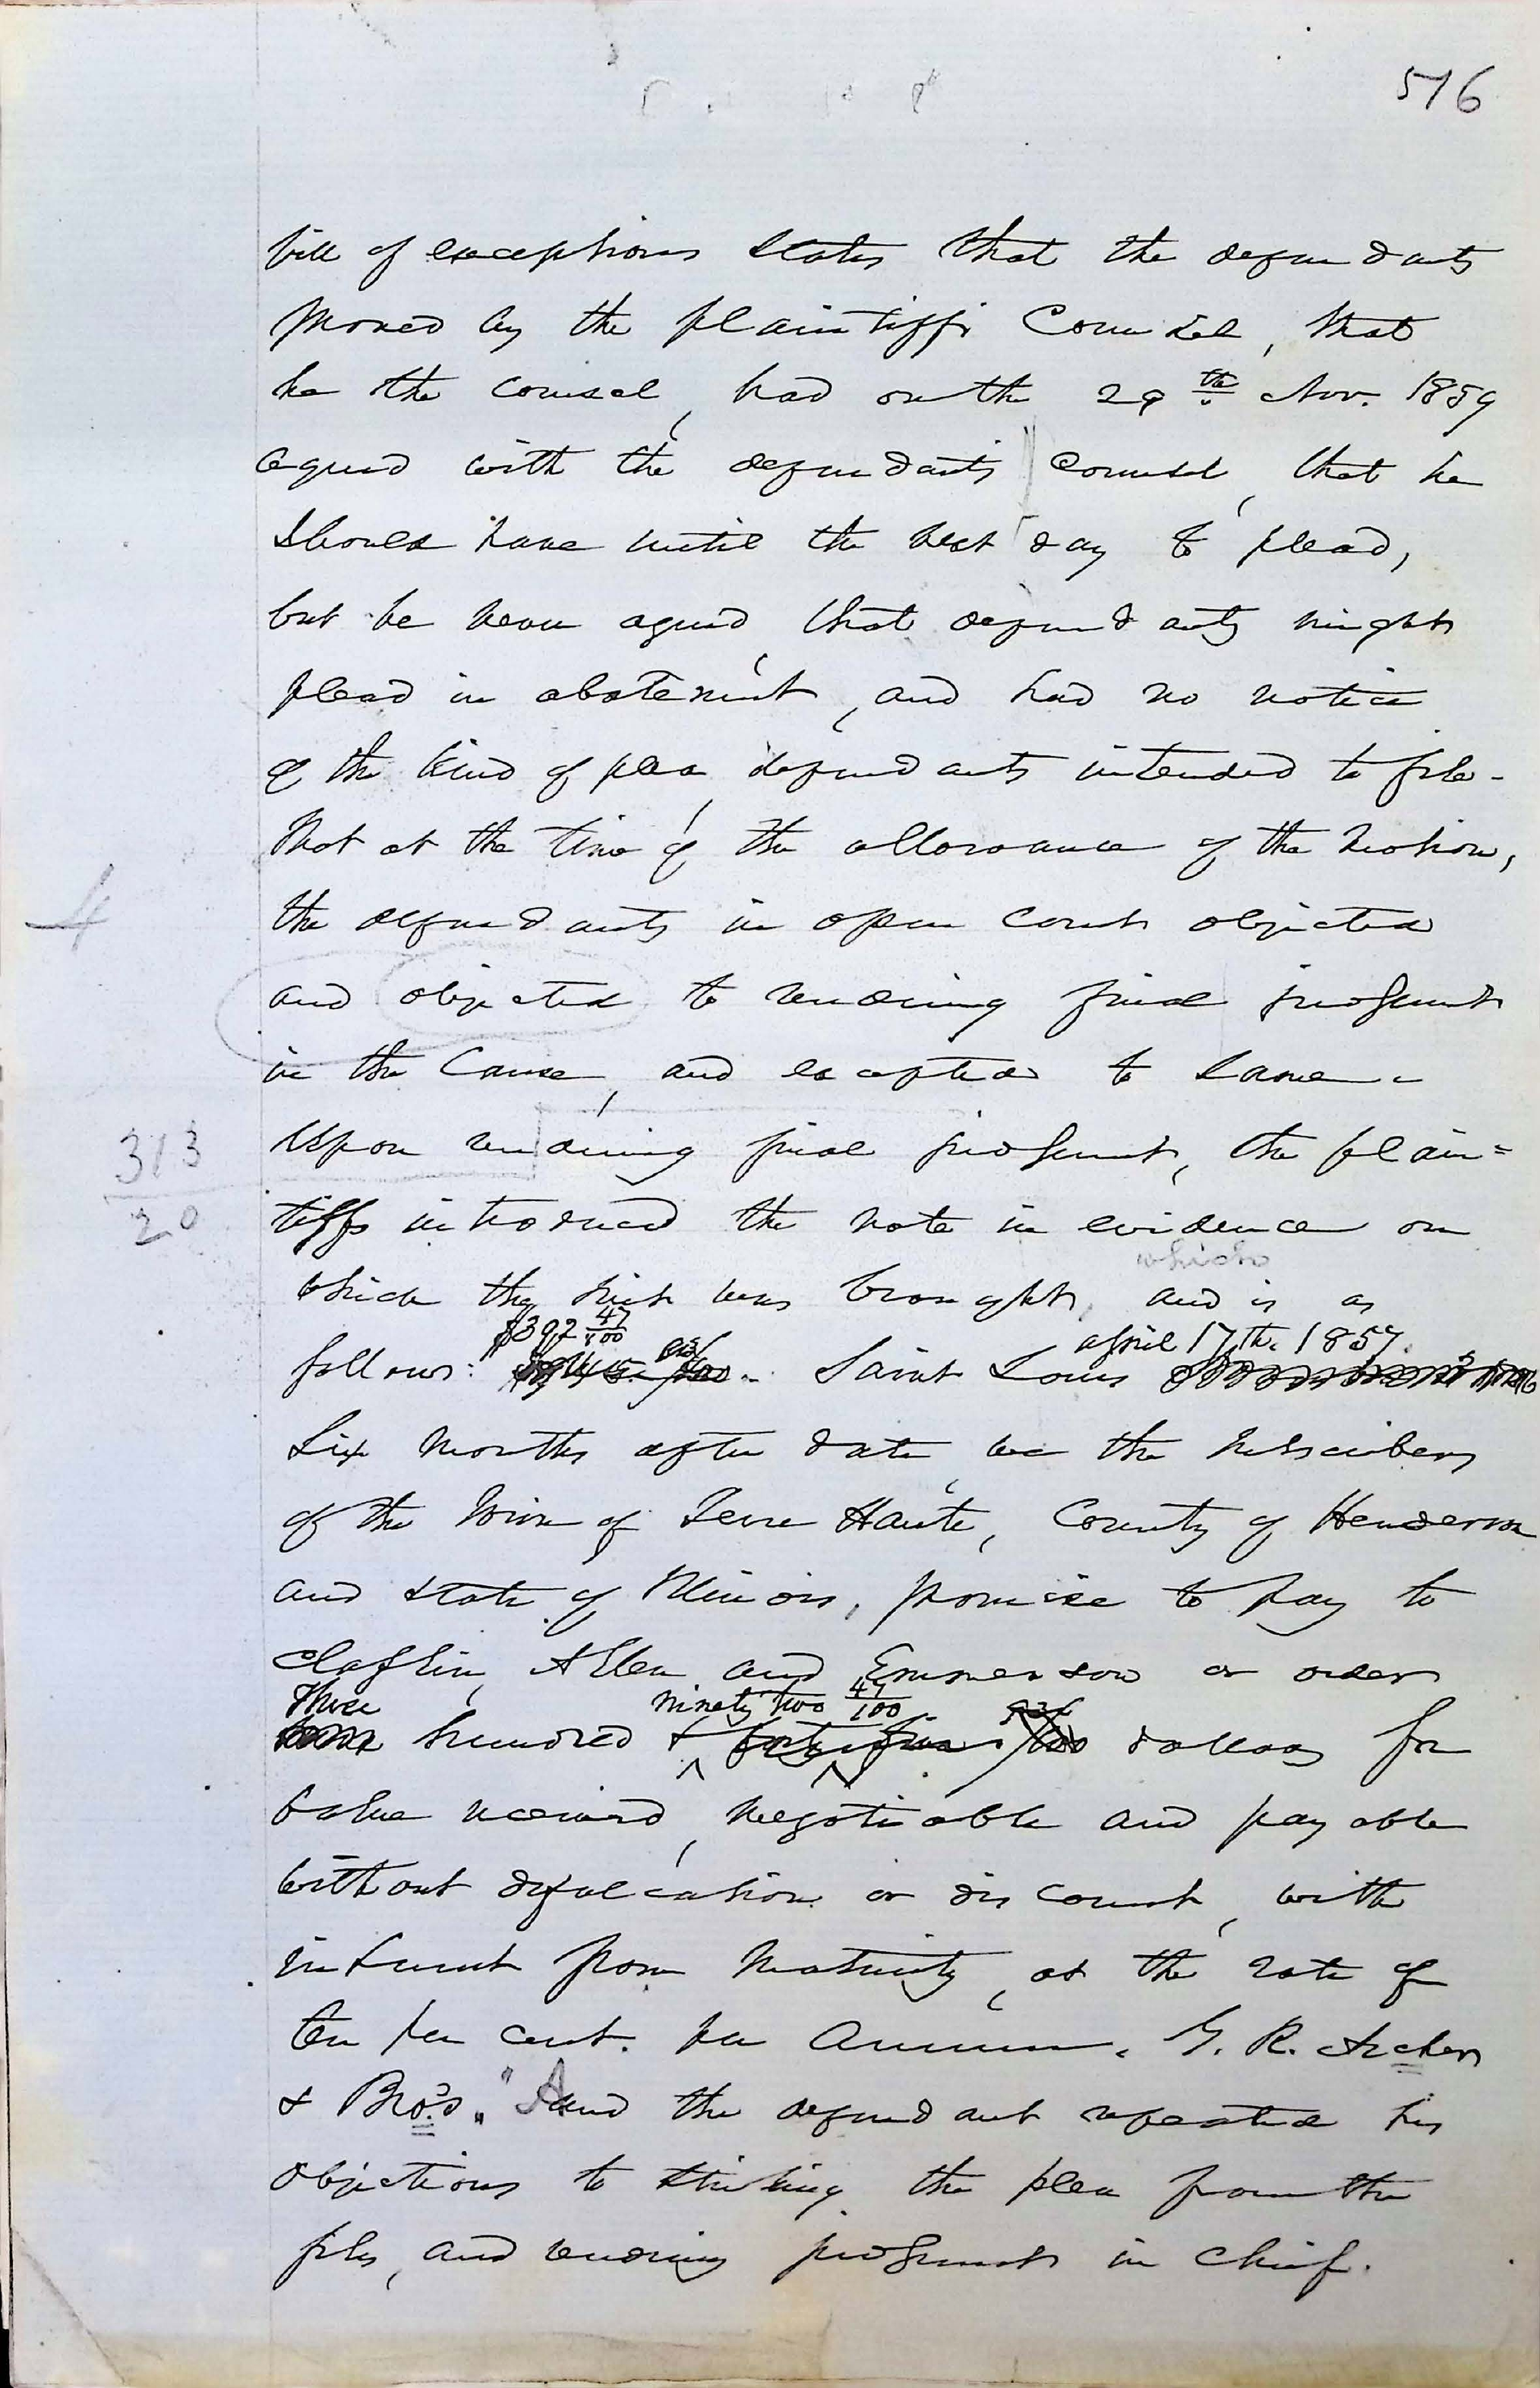 516
bill of exceptions states that the defendants
proved by the plaintiffs Counsel, that
he the counsel, had on the 29th Nov. 1859
agreed with the defendants counsel, that he
should have until the next day to plead,
but he never agreed, that defendants might
plead in abatement, and had no notice
of the kind of plea, defendants intended to file -
That at the time of the allowance of the motion,
4
the defendants in open court objected
and objected to rendering final judgment
in the Cause, and excepted to same -
313
20
Upon rendering final judgment, the plain=
tiffs introduced the note in evidence on
which
which the suit was brought, and is as
$392 47/100 april 17th. 1857.
follows: Saint Louis
Six months after date, we the subscribers
of the town of Terre Haute, County of Henderson
and state of Illinois, promise to pay to
Claflin, Allen and Emmerson or order
Three ninety two 47/100
hundred & dollars for
value received, negotiable and payable
without defalcation or discount, with
interest from maturity, at the rate of
ten per cent. per annum. G. R. Archer
& Bro's." And the defendant repeated his
objections to striking the plea from the
files, and rendering judgment in chief.